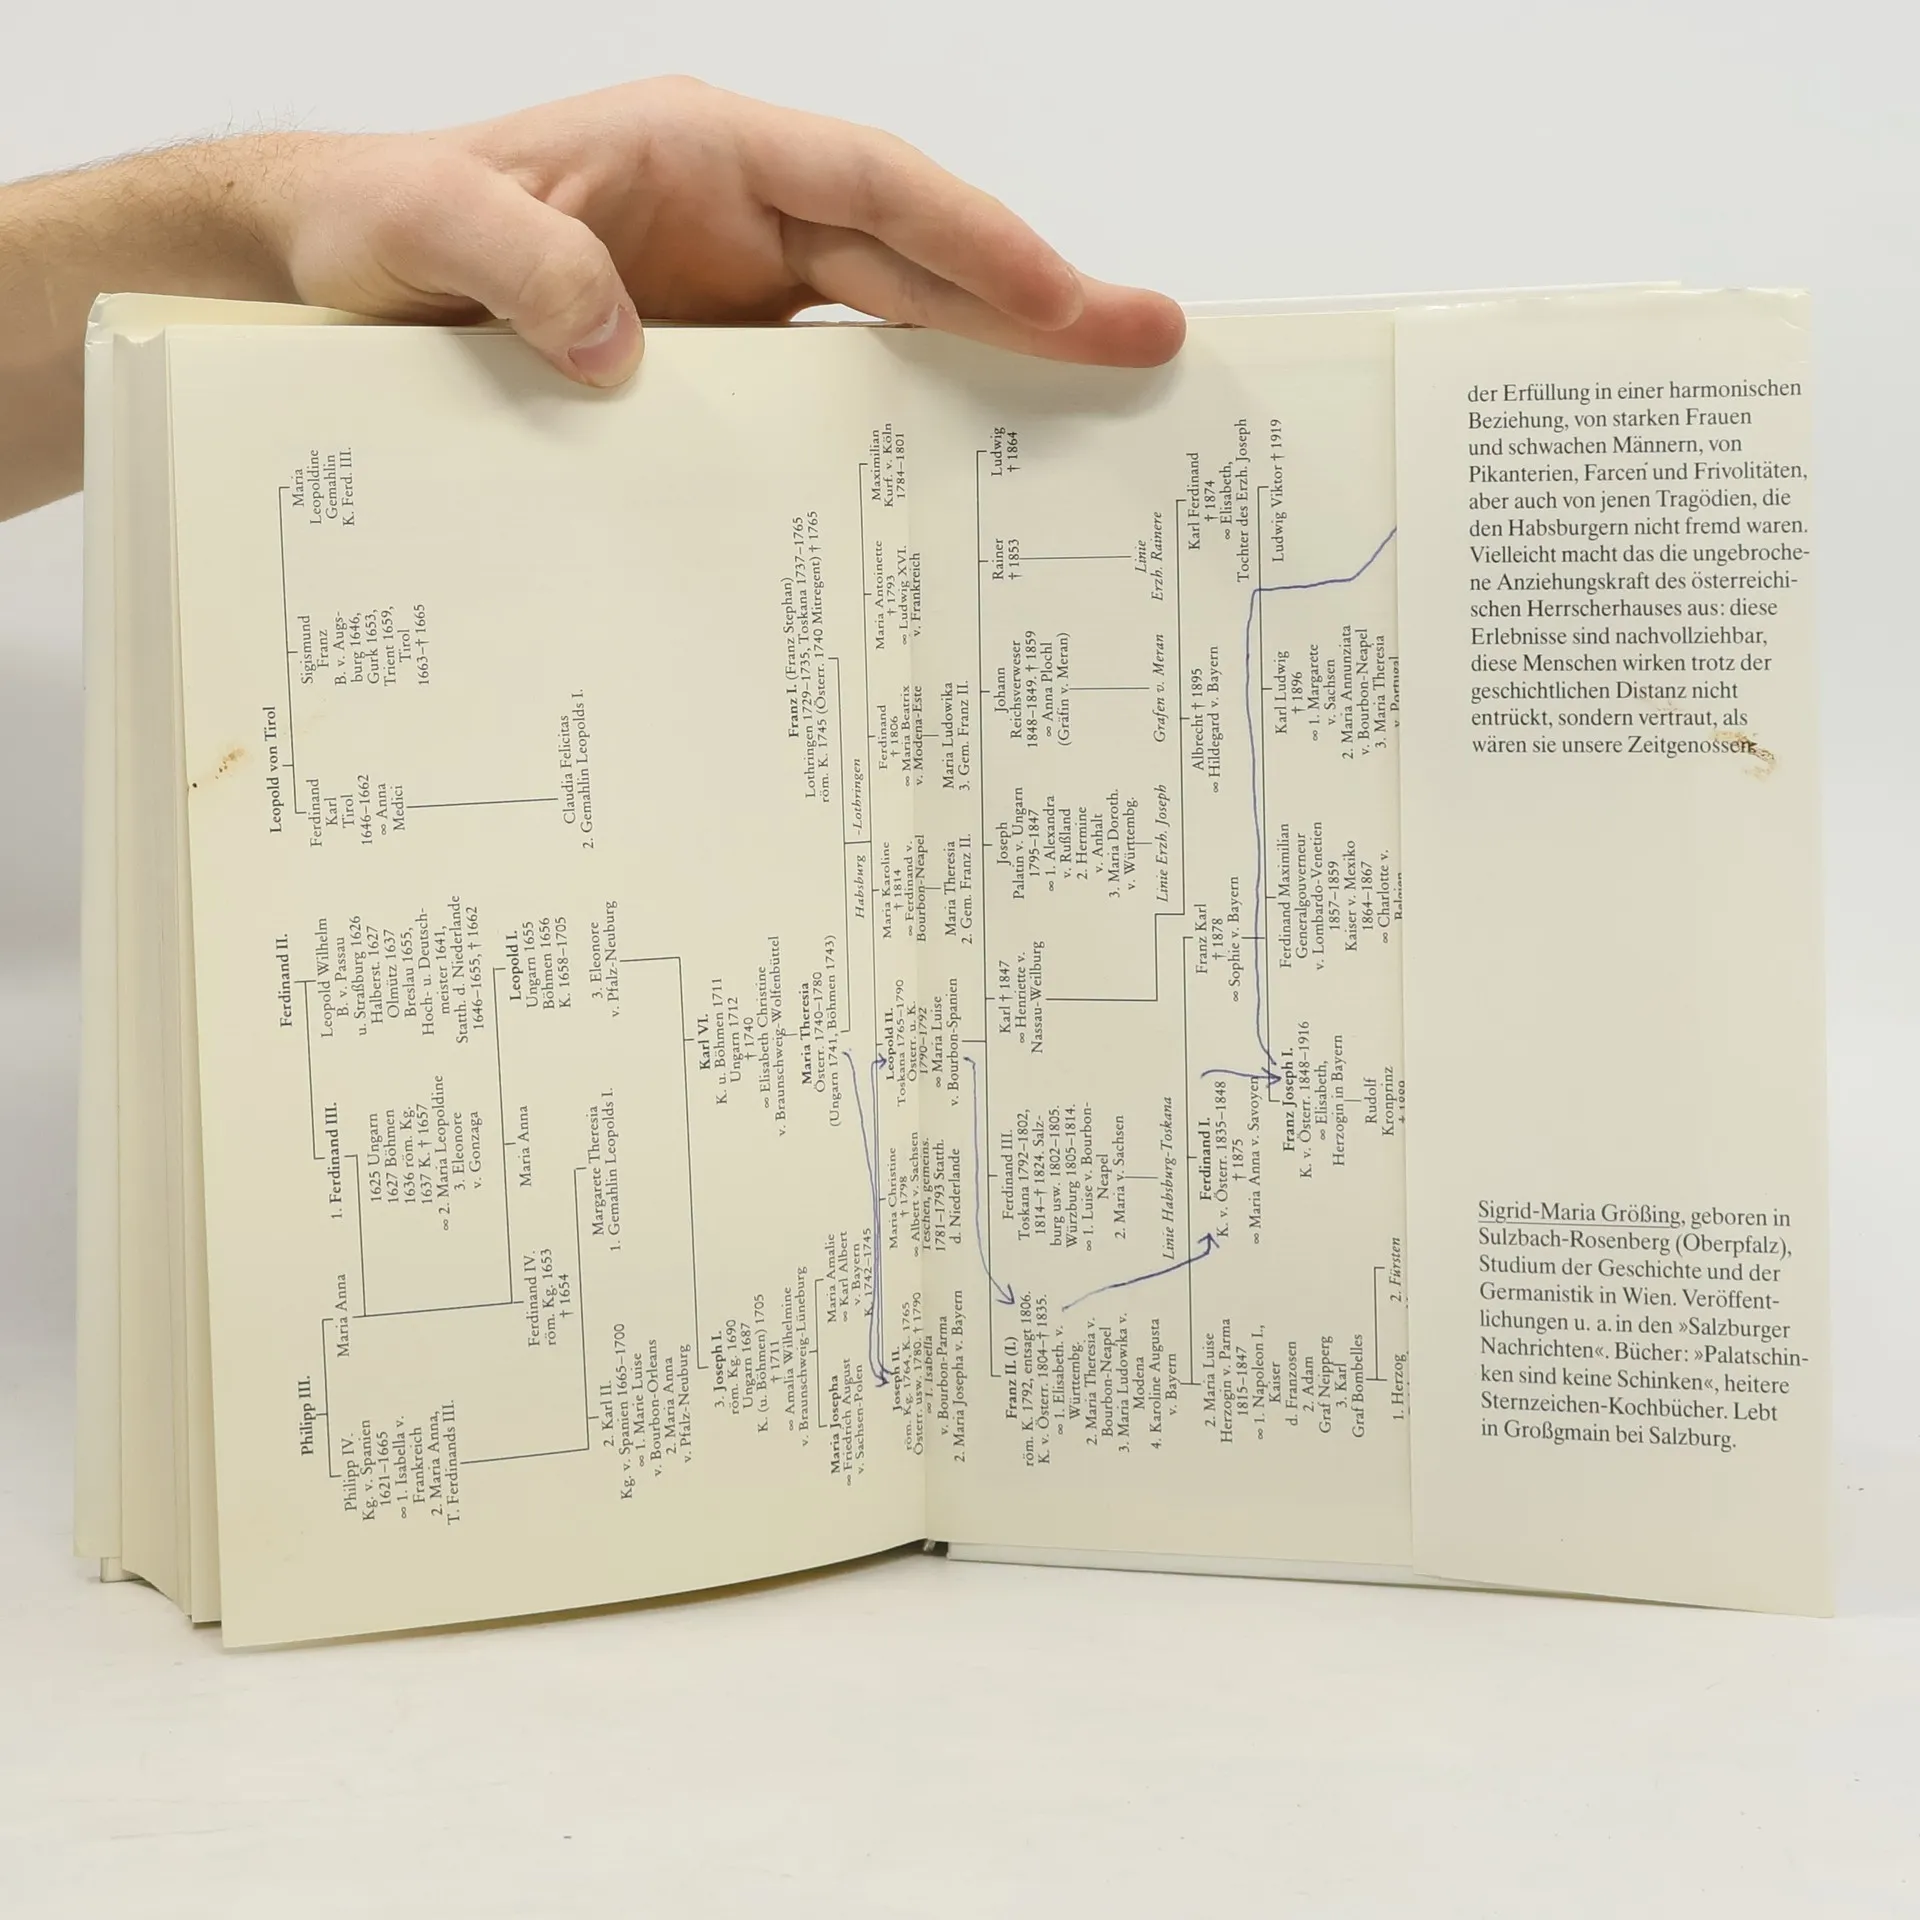 Philipp III.
Philipp IV.
Kg. v. Spanien
1621–1665
∞ 1. Isabella v.
Frankreich
2. Maria Anna,
T. Ferdinands III.
Maria Anna
Ferdinand II.
1. Ferdinand III.
1625 Ungarn
1627 Böhmen
1636 röm. Kg.
1637 K. † 1657
∞ 2. Maria Leopoldine
3. Eleonore
v. Gonzaga
Leopold Wilhelm
B. v. Passau
u. Straßburg 1626
Halberst. 1627
Olmütz 1637
Breslau 1655,
Hoch- u. Deutsch-
meister 1641,
Statth. d. Niederlande
1646–1655, † 1662
Leopold von Tirol
Ferdinand
Karl
Tirol
1646–1662
∞ Anna
Medici
Sigismund
Franz
B. v. Augs-
burg 1646,
Gurk 1653,
Trient 1659,
Tirol
1663–† 1665
Maria
Leopoldine
Gemahlin
K. Ferd. III.
Ferdinand IV.
röm. Kg. 1653
† 1654
Maria Anna
Leopold I.
Ungarn 1655
Böhmen 1656
K. 1658–1705
Claudia Felicitas
2. Gemahlin Leopolds I.
2. Karl II.
Kg. v. Spanien 1665–1700
∞ 1. Marie Luise
v. Bourbon-Orleans
2. Maria Anna
v. Pfalz-Neuburg
Margarete Theresia
1. Gemahlin Leopolds I.
3. Eleonore
v. Pfalz-Neuburg
3. Joseph I.
röm. Kg. 1690
Ungarn 1687
K. (u. Böhmen) 1705
† 1711
∞ Amalia Wilhelmine
v. Braunschweig-Lüneburg
Karl VI.
K. u. Böhmen 1711
Ungarn 1712
† 1740
∞ Elisabeth Christine
v. Braunschweig-Wolfenbüttel
Maria Theresia
Österr. 1740–1780
(Ungarn 1741, Böhmen 1743)
Franz I. (Franz Stephan)
Lothringen 1729–1735, Toskana 1737–1765
röm. K. 1745 (Österr. 1740 Mitregent) † 1765
Maria Josepha
∞ Friedrich August
v. Sachsen-Polen
Maria Amalie
∞ Karl Albert
v. Bayern
K. 1742–1745
Habsburg-Lothringen
Joseph II.
röm. Kg. 1764, K. 1765
Österr. usw. 1780. † 1790
∞ 1. Isabella
v. Bourbon-Parma
2. Maria Josepha v. Bayern
Maria Christine
† 1798
∞ Albert v. Sachsen
Teschen, gemeins.
1781–1793 Statth.
d. Niederlande
Leopold II.
Toskana 1765–1790
Österr. u. K.
1790–1792
∞ Maria Luise
v. Bourbon-Spanien
Maria Karoline
† 1814
∞ Ferdinand v.
Bourbon-Neapel
Maria Theresia
2. Gem. Franz II.
Ferdinand
† 1806
∞ Maria Beatrix
v. Modena-Este
Maria Ludowika
3. Gem. Franz II.
Maria Antoinette
† 1793
∞ Ludwig XVI.
v. Frankreich
Maximilian
Kurf. v. Köln
1784–1801
Franz II. (I.)
röm. K. 1792, entsagt 1806.
K. v. Österr. 1804–† 1835.
∞ 1. Elisabeth. v.
Württembg.
2. Maria Theresia v.
Bourbon-Neapel
3. Maria Ludowika v.
Modena
4. Karoline Augusta
v. Bayern
Ferdinand III.
Toskana 1792–1802,
1814–† 1824. Salz-
burg usw. 1802–1805.
Würzburg 1805–1814.
∞ 1. Luise v. Bourbon-
Neapel
2. Maria v. Sachsen
Linie Habsburg-Toskana
Karl † 1847
∞ Henriette v.
Nassau-Weilburg
Joseph
Palatin v. Ungarn
1795–1847
∞ 1. Alexandra
v. Rußland
2. Hermine
v. Anhalt
3. Maria Doroth.
v. Württembg.
Linie Erzh. Joseph
Johann
Reichsverweser
1848–1849, † 1859
∞ Anna Plochl
(Gräfin v. Meran)
Grafen v. Meran
Rainer
† 1853
Linie
Erzh. Rainere
Ludwig
† 1864
2. Maria Luise
Herzogin v. Parma
1815–1847
∞ 1. Napoleon I.,
Kaiser
d. Franzosen
2. Adam
Graf Neipperg
3. Karl
Graf Bombelles
1. Herzog
2. Fürsten
Ferdinand I.
K. v. Österr. 1835–1848
† 1875
∞ Maria Anna v. Savoyen
Franz Karl
† 1878
∞ Sophie v. Bayern
Albrecht † 1895
∞ Hildegard v. Bayern
Karl Ferdinand
† 1874
∞ Elisabeth,
Tochter des Erzh. Joseph
Franz Joseph I.
K. v. Österr. 1848–1916
∞ Elisabeth,
Herzogin in Bayern
Rudolf
Kronprinz
† 1889
Ferdinand Maximilian
Generalgouverneur
v. Lombardo-Venetien
1857–1859
Kaiser v. Mexiko
1864–1867
∞ Charlotte v.
Belgien
Karl Ludwig
† 1896
∞ 1. Margarete
v. Sachsen
2. Maria Annunziata
v. Bourbon-Neapel
3. Maria Theresia
v. Portugal
Ludwig Viktor † 1919
der Erfüllung in einer harmonischen
Beziehung, von starken Frauen
und schwachen Männern, von
Pikanterien, Farcen und Frivolitäten,
aber auch von jenen Tragödien, die
den Habsburgern nicht fremd waren.
Vielleicht macht das die ungebroche-
ne Anziehungskraft des österreichi-
schen Herrscherhauses aus: diese
Erlebnisse sind nachvollziehbar,
diese Menschen wirken trotz der
geschichtlichen Distanz nicht
entrückt, sondern vertraut, als
wären sie unsere Zeitgenossen.
Sigrid-Maria Größing, geboren in
Sulzbach-Rosenberg (Oberpfalz),
Studium der Geschichte und der
Germanistik in Wien. Veröffent-
lichungen u. a. in den »Salzburger
Nachrichten«. Bücher: »Palatschin-
ken sind keine Schinken«, heitere
Sternzeichen-Kochbücher. Lebt
in Großgmain bei Salzburg.